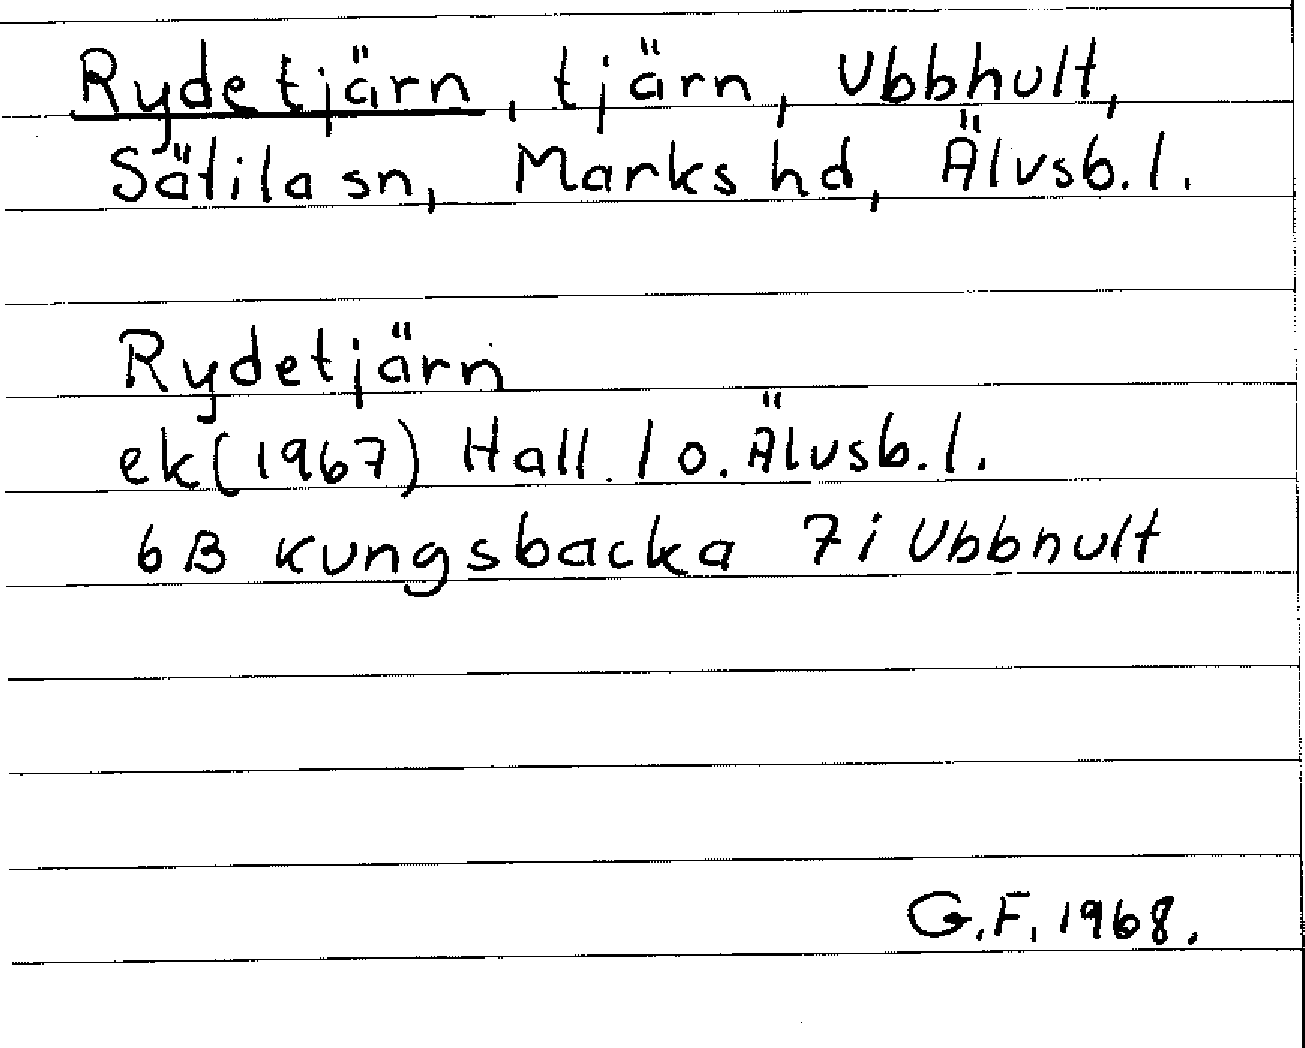 Rydetjärn, tjärn, Ubbhult,
Sätila sn, Marks hd, Älvsb. l.
Rydetjärn
ek (1967) Hall. l o. Älvsb. l.
6B Kungsbacka 7i Ubbhult
G.F. 1968.